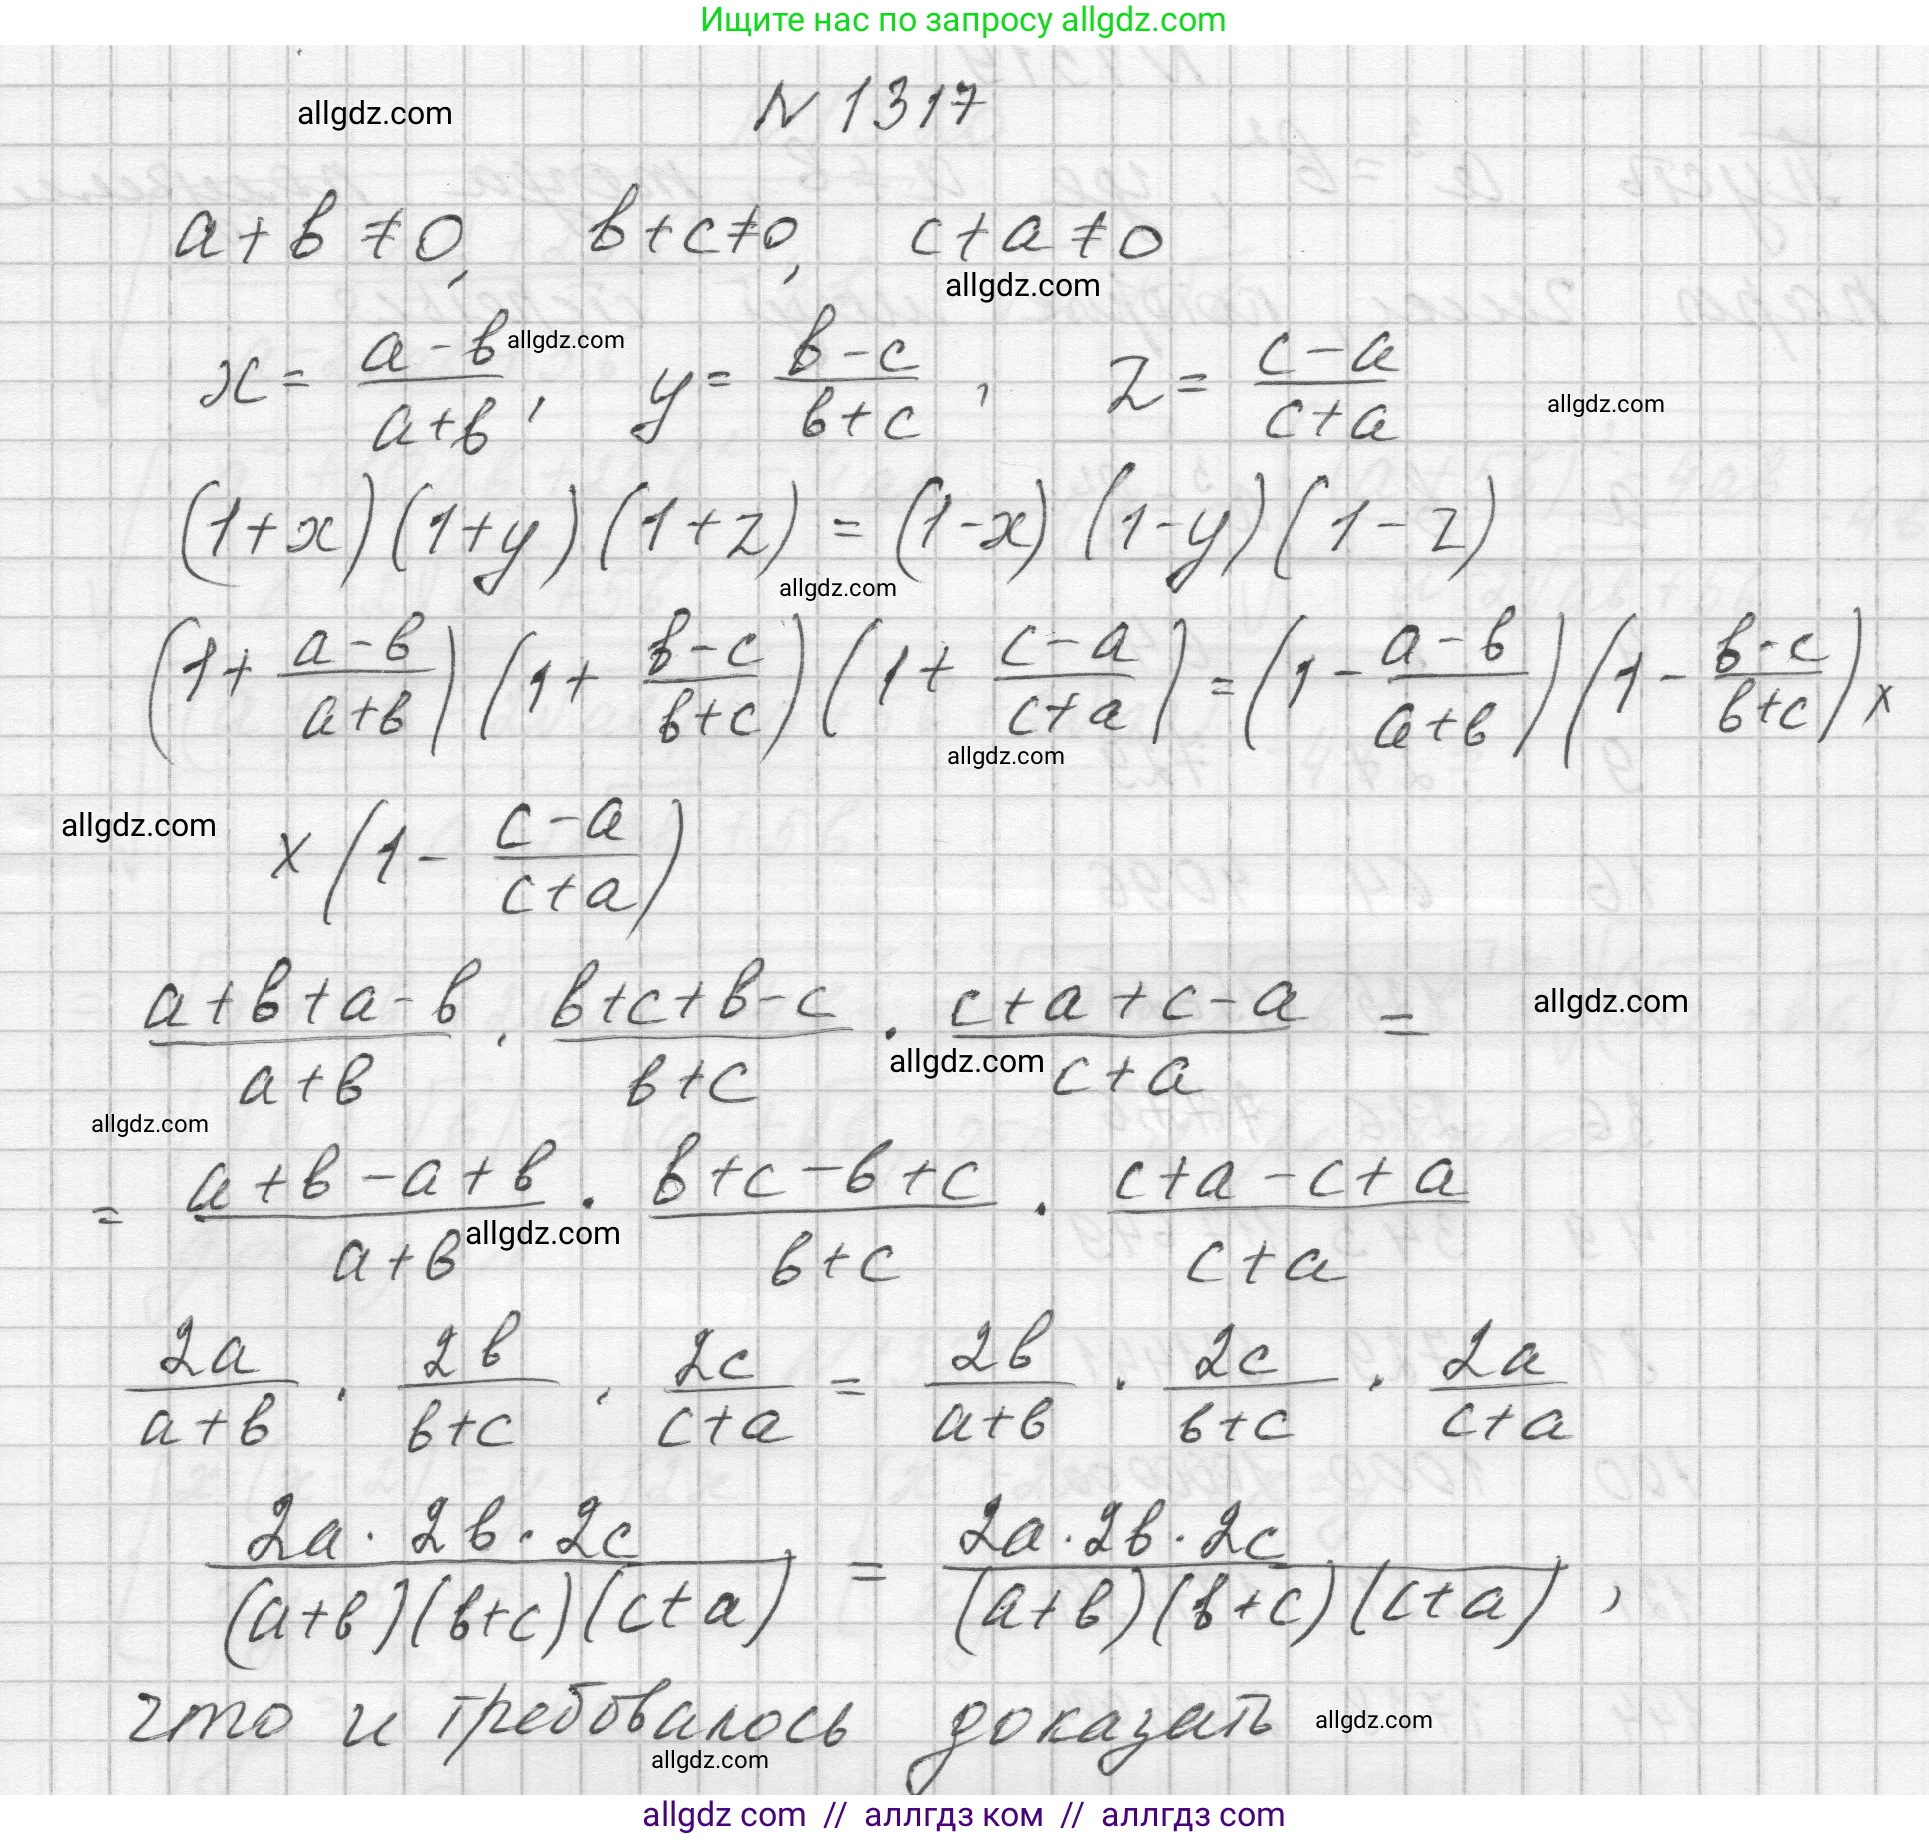 Ищите нас по запросу allgdz.com
allgdz.com
N 1317
a+b≠0, b+c≠0, c+a≠0
allgdz.com
x = (a-b)/(a+b), y = (b-c)/(b+c), z = (c-a)/(c+a)
allgdz.com
allgdz.com
(1+x)(1+y)(1+z) = (1-x)(1-y)(1-z)
allgdz.com
(1+(a-b)/(a+b))(1+(b-c)/(b+c))(1+(c-a)/(c+a)) = (1-(a-b)/(a+b))(1-(b-c)/(b+c)) ×
allgdz.com
allgdz.com
× (1-(c-a)/(c+a))
(a+b+a-b)/(a+b) · (b+c+b-c)/(b+c) · (c+a+c-a)/(c+a) =
allgdz.com
allgdz.com
allgdz.com
= (a+b-a+b)/(a+b) · (b+c-b+c)/(b+c) · (c+a-c+a)/(c+a)
allgdz.com
2a/(a+b) · 2b/(b+c) · 2c/(c+a) = 2b/(a+b) · 2c/(b+c) · 2a/(c+a)
(2a·2b·2c)/((a+b)(b+c)(c+a)) = (2a·2b·2c)/((a+b)(b+c)(c+a)),
что и требовалось доказать
allgdz.com
allgdz.com
allgdz com // аллгдз ком // аллгдз com